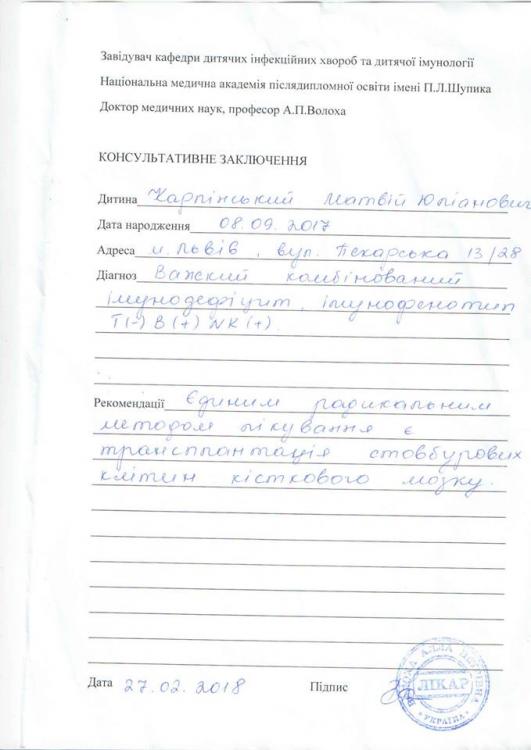 Завідувач кафедри дитячих інфекційних хвороб та дитячої імунології
Національна медична академія післядипломної освіти імені П.Л.Шупика
Доктор медичних наук, професор А.П.Волоха
КОНСУЛЬТАТИВНЕ ЗАКЛЮЧЕННЯ
Дитина Карпінський Матвій Юліанович
Дата народження 08.09.2017
Адреса м. Львів, вул. Пекарська 13/28
Діагноз Важкий комбінований
імунодефіцит, імунофенотип
Т(-) В(+) NK(+).
Рекомендації Єдиним радикальним
методом лікування є
трансплантація стовбурових
клітин кісткового мозку.
Дата 27.02.2018 Підпис
ВОЛОХА АЛЛА ПЕТРІВНА
ЛІКАР
УКРАЇНА